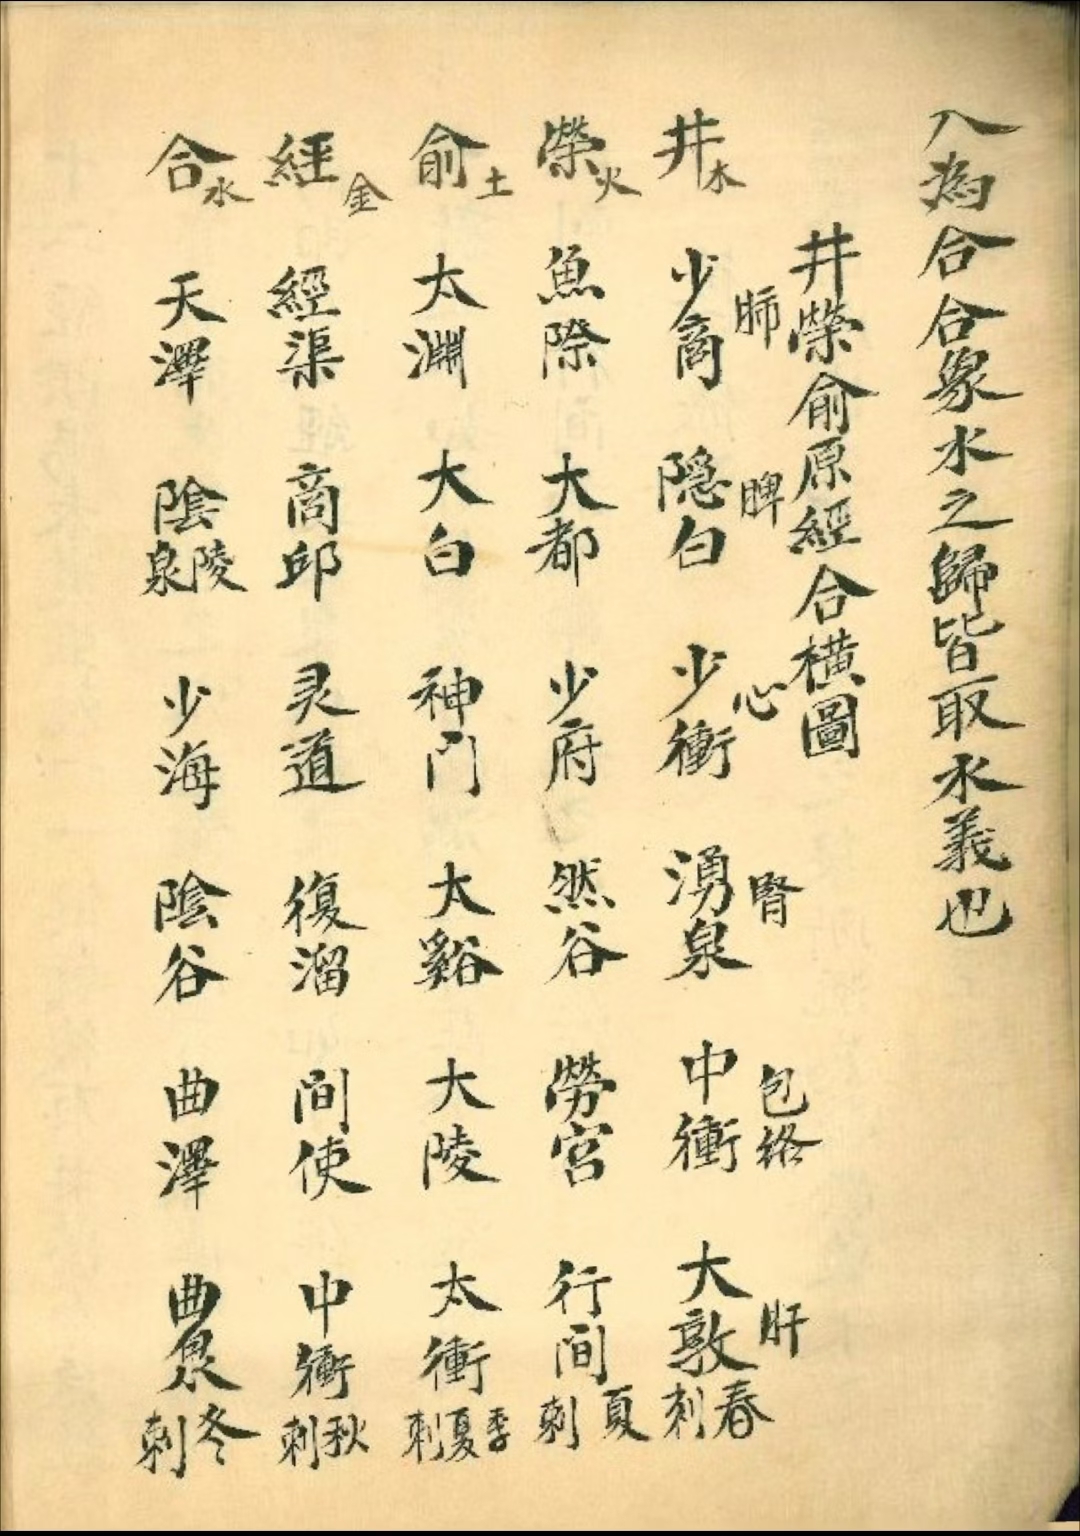 入為合合象水之歸皆取水義也
井榮俞原經合橫圖
肺 脾 心 腎 包絡 肝
井木 少商 隐白 少衝 湧泉 中衝 大敦 春刺
榮火 魚際 大都 少府 然谷 勞宮 行间 夏刺
俞土 太淵 大白 神门 太谿 大陵 太衝 季夏刺
經金 經渠 商邱 灵道 復溜 间使 中衝 秋刺
合水 天澤 陰陵泉 少海 陰谷 曲澤 曲泉 冬刺